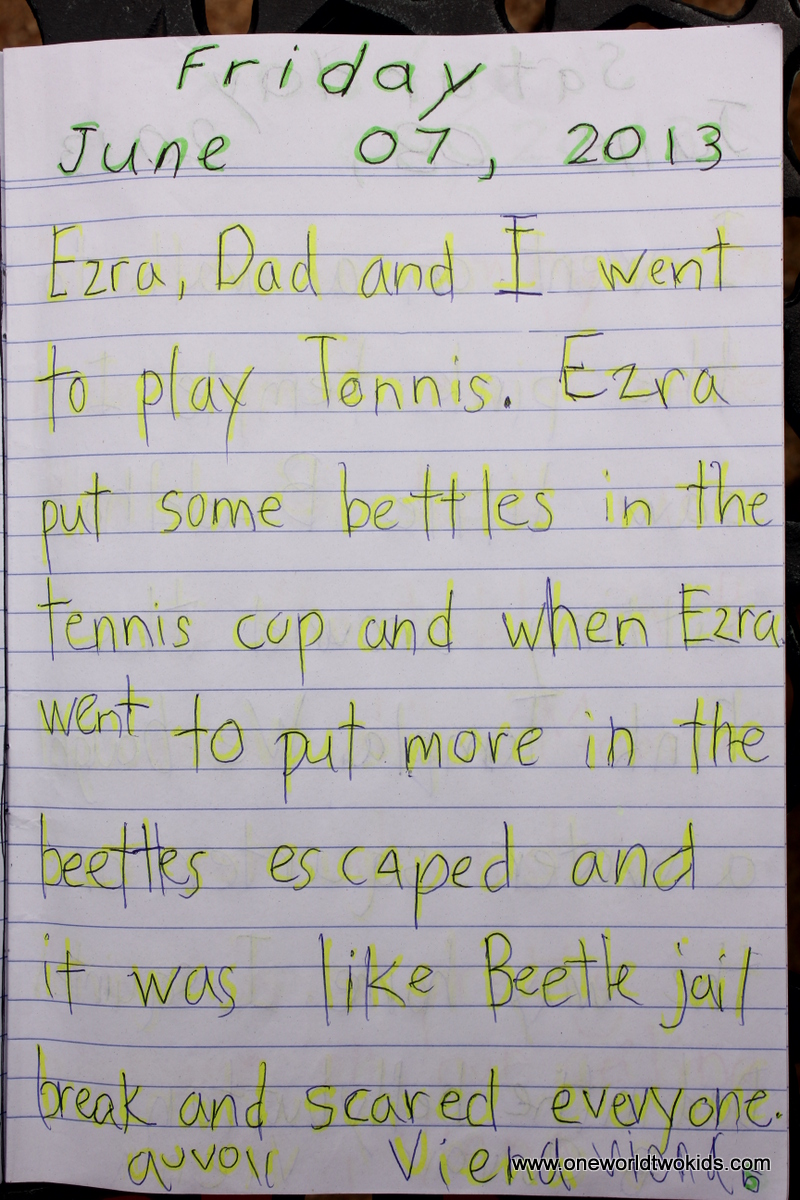 Friday
June 07, 2013
Ezra, Dad and I went
to play Tennis. Ezra
put some bettles in the
tennis cup and when Ezra
went to put more in the
beettles escaped and
it was like Beetle jail
break and scared everyone.
auvoir
www.oneworldtwokids.com